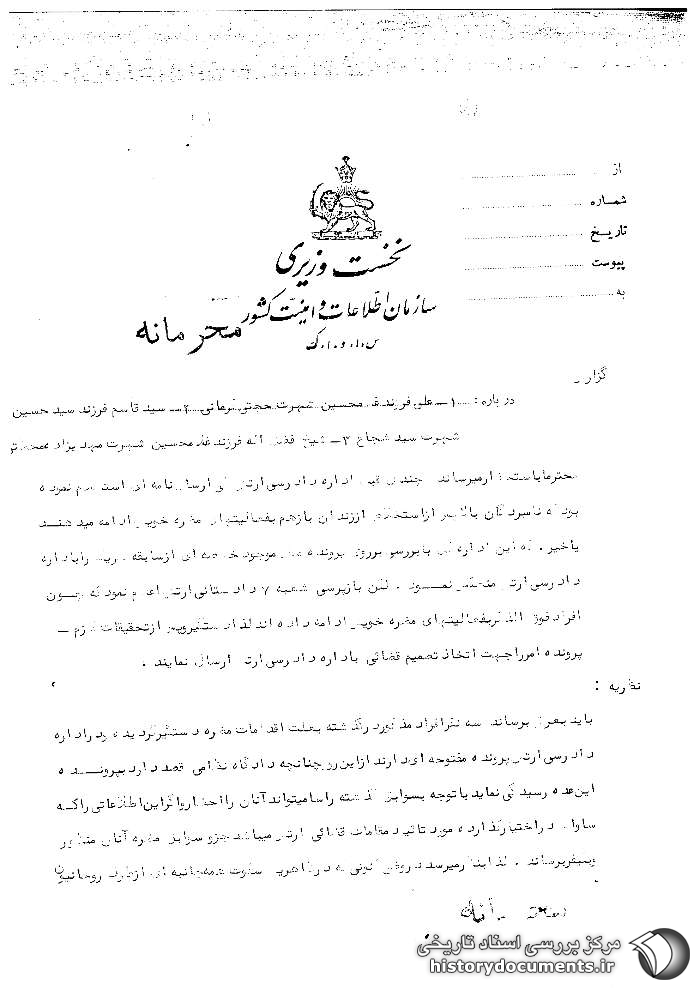 از
شماره
تاریخ
پیوست
به
نخست وزیری
سازمان اطلاعات و امنیت کشور
س.ا.و.ا.ک
محرمانه
گزارش
درباره: ۱ـ علی فرزند غلامحسین شهرت حجتی کرمانی ۲ـ سید قاسم فرزند سید حسین
شهرت سید شجاع ۳ـ شیخ فضل اله فرزند غلامحسین شهرت مهدیزاده محلاتی
محترما باستحضار میرساند چندی قبل اداره دادرسی ارتش طی ارسال نامه ای استعلام نموده
بود که نامبردگان بالا پس از استخلاص از زندان باز هم بفعالیتهای مضره خویش ادامه میدهند
یا خیر. که این اداره کل با بررسی پرونده های موجود خلاصه ای از سابقه را باداره
دادرسی ارتش منعکس نمود. لکن بازپرسی شعبه ۷ دادستانی ارتش اعلام نموده چون
افراد فوق الذکر بفعالیتهای مضره خویش ادامه داده اند لذا دستگیر و پس از تحقیقات لازم ـ
پرونده امر را جهت اتخاذ تصمیم قضائی باداره دادرسی ارتش ارسال نمایند.
نظریه :
باید بعرض برساند سه نفر افراد مذکور در گذشته بعلت اقدامات مضره دستگیر گردیده و در اداره
دادرسی ارتش پرونده مفتوحه ای دارند از این رو چنانچه دادگاه نظامی قصد دارد بپرونده
این عده رسیدگی نماید با توجه بسوابق گذشته راسا میتواند آنان را احضار و اگر این اطلاعاتی را که
ساواک در اختیار گذارده مورد تائید مقامات قضائی ارتش میباشد جزو سوابق مضره آنان منظور
و بکیفر برساند. لذا بنظر میرسد در وضع کنونی که در ظاهر یک سکوت همه جانبه ای از طرف روحانیون
مرکز بررسی اسناد تاریخی
historydocuments.ir